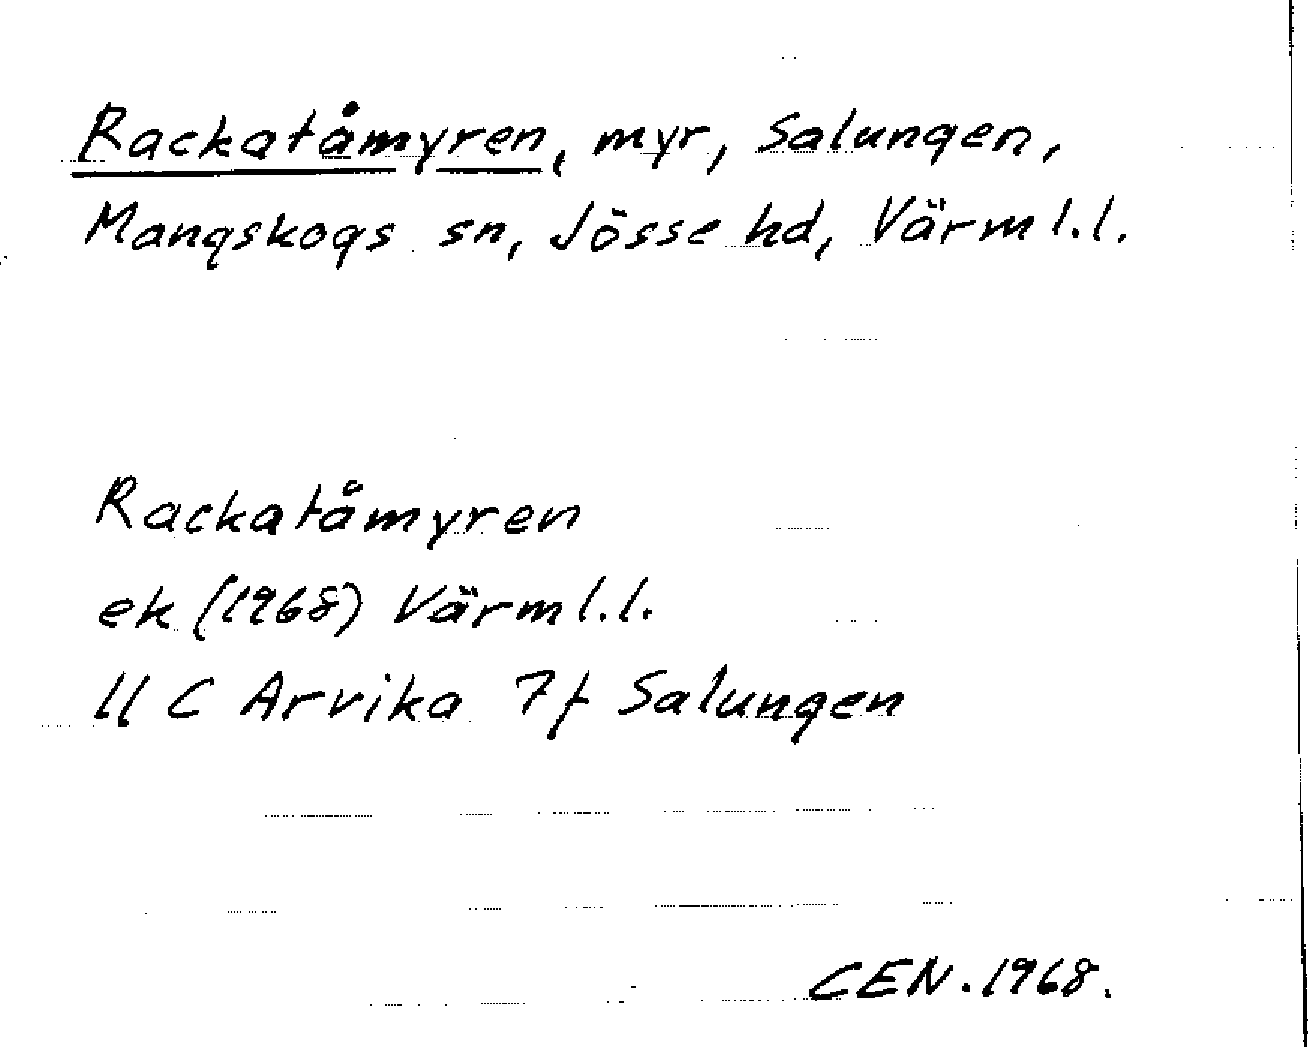 Rackatåmyren, myr, Salungen,
Mangskogs sn, Jösse hd, Värml.l.
Rackatåmyren
ek (1968) Värml.l.
11 C Arvika 7f Salungen
CEN. 1968.